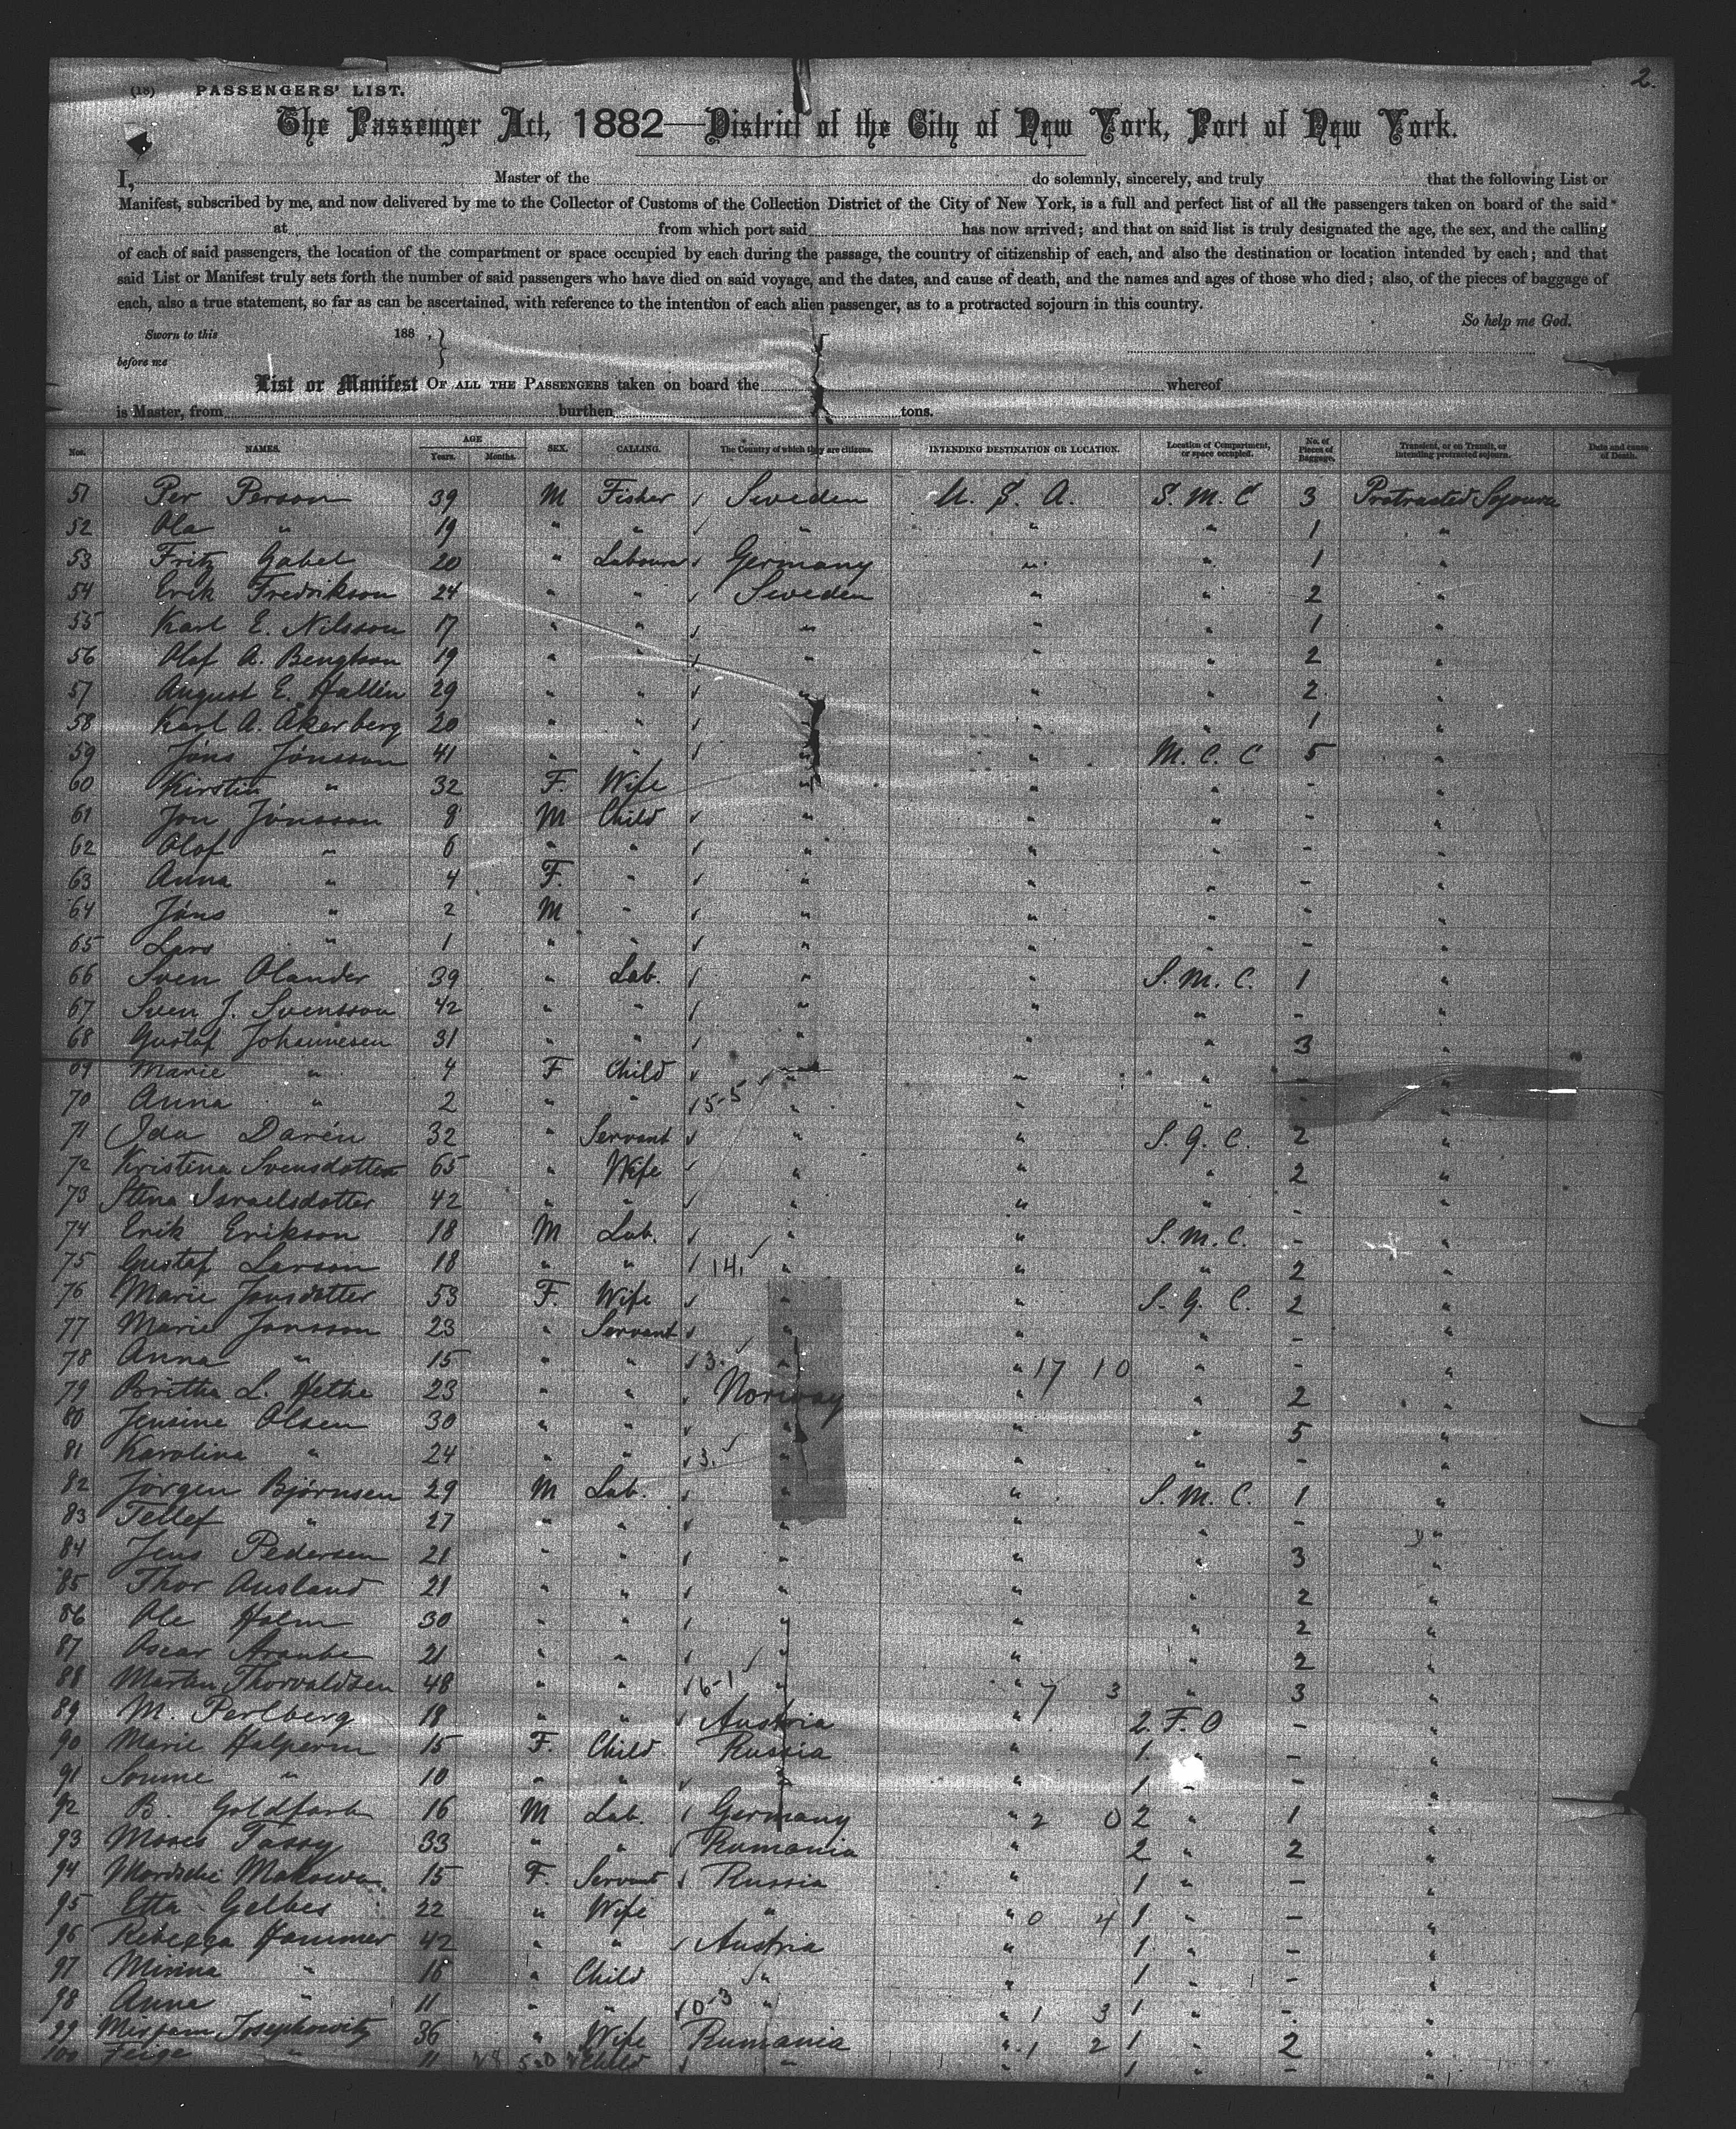 2.
(18) PASSENGERS' LIST.
The Passenger Act, 1882—District of the City of New York, Port of New York.
I, Master of the do solemnly, sincerely, and truly that the following List or
Manifest, subscribed by me, and now delivered by me to the Collector of Customs of the Collection District of the City of New York, is a full and perfect list of all the passengers taken on board of the said
at from which port said has now arrived; and that on said list is truly designated the age, the sex, and the calling
of each of said passengers, the location of the compartment or space occupied by each during the passage, the country of citizenship of each, and also the destination or location intended by each; and that
said List or Manifest truly sets forth the number of said passengers who have died on said voyage, and the dates, and cause of death, and the names and ages of those who died; also, of the pieces of baggage of
each, also a true statement, so far as can be ascertained, with reference to the intention of each alien passenger, as to a protracted sojourn in this country.
So help me God.
Sworn to this 188 , }
before me
List or Manifest OF ALL THE PASSENGERS taken on board the whereof
is Master, from burthen tons.
Nos. NAMES. AGE Years. Months. SEX. CALLING. The Country of which they are citizens. INTENDING DESTINATION OR LOCATION. Location of Compartment, or space occupied. No. of Pieces of Baggage. Transient, or on Transit, or intending protracted sojourn. Date and cause of Death.
51 Per Person 39 M Fisher Sweden U. S. A. S. M. C 3 Protracted Sojourn
52 Ola " 19 " " " " " 1 "
53 Fritz Gabel 20 " Labourer Germany " " 1 "
54 Erik Fredrikson 24 " " Sweden " " 2 "
55 Karl E. Nilsson 17 " " " " " 1 "
56 Olof A. Bengtson 19 " " " " " 2 "
57 August E. Hallén 29 " " " " " 2 "
58 Karl A. Åkerberg 20 " " " " " 1 "
59 Jöns Jönsson 41 " " " " M. C. C 5 "
60 Kirstin " 32 F. Wife " " " - "
61 Jon Jönsson 8 M Child " " " - "
62 Olof " 6 " " " " " - "
63 Anna " 4 F. " " " " - "
64 Jöns " 2 M " " " " - "
65 Lars " 1 " " " " " - "
66 Sven Olander 39 " Lab. " " S. M. C. 1 "
67 Sven J. Svensson 42 " " " " " - "
68 Gustaf Johannesen 31 " " " " " 3 "
69 Marie " 4 F Child " " " - "
70 Anna " 2 " " 15-5 " " " - "
71 Ida Darén 32 " Servant " " S. G. C. 2 "
72 Kristina Svensdotter 65 " Wife " " " 2 "
73 Stina Israelsdotter 42 " " " " " - "
74 Erik Erikson 18 M Lab. " " S. M. C. - "
75 Gustaf Larson 18 " " 14. " " " 2 "
76 Marie Jonsdotter 53 F. Wife " " S. G. C. 2 "
77 Marie Jonsson 23 " Servant " " " - "
78 Anna " 15 " " 3. " " 17 10 " - "
79 Britha L. Hethe 23 " " Norway " " 2 "
80 Jensine Olsen 30 " " " " " 5 "
81 Karolina " 24 " " 3. " " " - "
82 Jörgen Björnsen 29 M Lab. " " S. M. C. 1 "
83 Tellef " 27 " " " " " - "
84 Jens Pedersen 21 " " " " " 3 "
85 Thor Ausland 21 " " " " " 2 "
86 Ole Holm 30 " " " " " 2 "
87 Oscar 21 " " " " " 2 "
88 Martin Thorvaldsen 48 " " 6-1 " " 7 3 " 3 "
89 M. Perlberg 18 " " Austria " 2. F. O - "
90 Marie Halperin 15 F. Child Russia " 1. " - "
91 " 10 " " " " 1 " - "
92 B. Goldfarb 16 M Lab. Germany " 2 0 2 " 1 "
93 Moses 33 " " Rumania " 2 " 2 "
94 15 F. Servant Russia " 1 " - "
95 Etta Gelbes 22 " Wife " " 0 4 1 " - "
96 Rebecca Hammer 42 " " Austria " 1. " - "
97 Minna " 16 " Child " " 1 " - "
98 Anne " 11 " " 10 3 " " 1 3 1 " - "
99 Mirjam Josephowitz 36 " Wife Rumania " 1 2 1 " 2 "
100 Feige " 11 Child " " 1 " - "